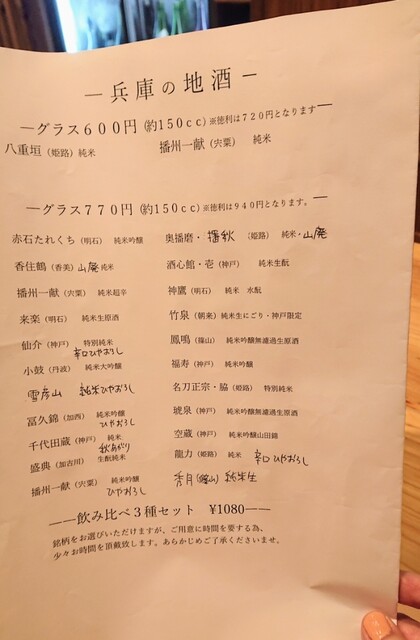 ― 兵庫の地酒 ―
―グラス600円 (約150cc) ※徳利は720円となります―
八重垣 (姫路) 純米 播州一献 (宍粟) 純米
―グラス770円 (約150cc) ※徳利は940円となります。―
赤石たれくち (明石) 純米吟醸 奥播磨・播秋 (姫路) 純米・山廃
香住鶴 (香美) 山廃純米 酒心館・壱 (神戸) 純米生酛
播州一献 (宍粟) 純米超辛 神鷹 (明石) 純米 水酛
来楽 (明石) 純米生原酒 竹泉 (朝来) 純米生にごり・神戸限定
仙介 (神戸) 特別純米 辛口ひやおろし 鳳鳴 (篠山) 純米吟醸無濾過生原酒
小鼓 (丹波) 純米大吟醸 福寿 (神戸) 純米吟醸
雪彦山 純米ひやおろし 名刀正宗・脇 (姫路) 特別純米
冨久錦 (加西) 純米吟醸 ひやおろし 琥泉 (神戸) 純米吟醸無濾過生原酒
千代田蔵 (神戸) 純米 秋あがり 空蔵 (神戸) 純米吟醸山田錦
盛典 (加古川) 生酛純米 龍力 (姫路) 純米 辛口ひやおろし
播州一献 (宍粟) 純米吟醸 ひやおろし 秀月 (篠山) 純米生
――飲み比べ3種セット ¥1080――
銘柄をお選びいただけますが、ご用意に時間を要する為、
少々お時間を頂戴致します。あらかじめご了承くださいませ。